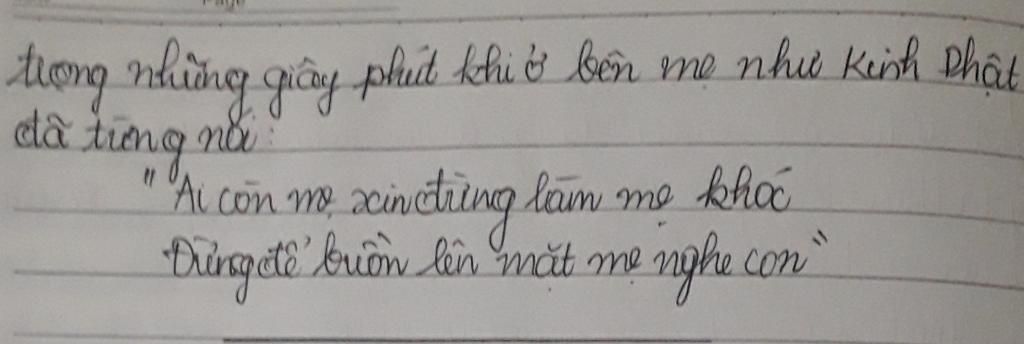 trong những giây phút khi ở bên mẹ như Kinh Phật
đã từng nói:
"Ai còn mẹ xin đừng làm mẹ khóc
Đừng để buồn lên mắt mẹ nghe con"